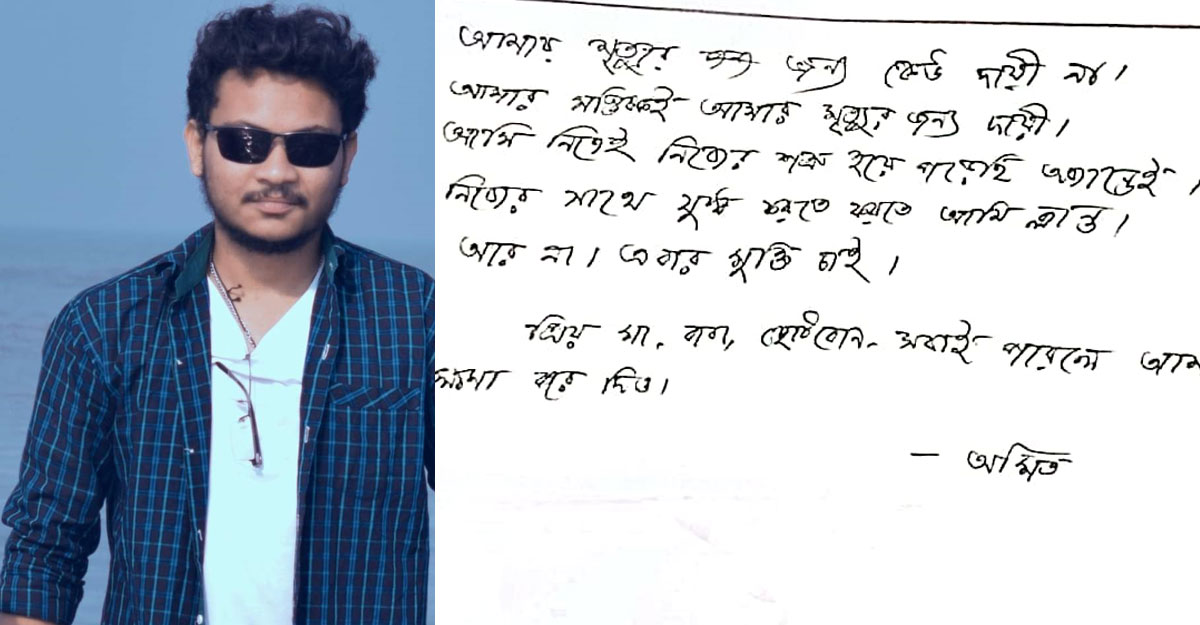 আমার মৃত্যুর জন্য কেউ দায়ী না।
আমার মস্তিষ্কই আমার মৃত্যুর জন্য দায়ী।
আমি নিজেই নিজের শত্রু হয়ে পড়েছি অজান্তেই।
নিজের সাথে যুদ্ধ করতে করতে আমি ক্লান্ত।
আর না। এবার মুক্তি চাই।
প্রিয় মা, বাবা, ছোটবোন- সবাই পারলে আমা
ক্ষমা করে দিও।
- অমিত